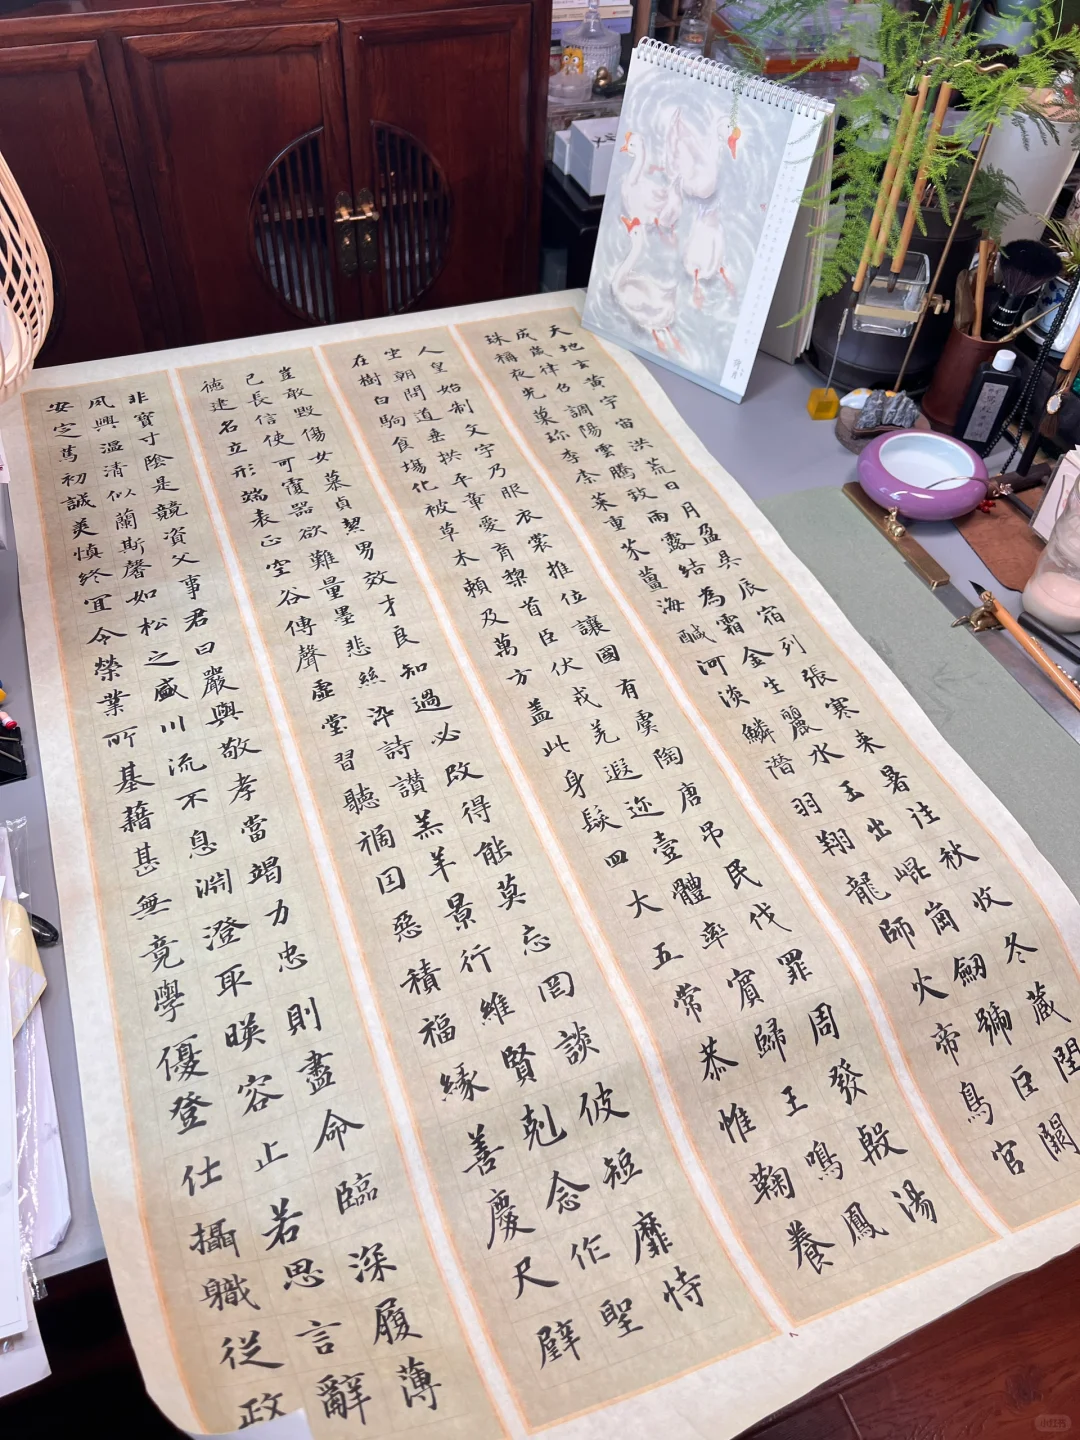 天地玄黃宇宙洪荒日月盈昃辰宿列張寒来暑往秋收冬蔵閏
成歲律呂調陽雲騰致雨露結為霜金生麗水玉出崐崗劒號巨闕
珠稱夜光菓珍李柰菜重芥薑海鹹河淡鱗潛羽翔龍師火帝鳥官
人皇始制文字乃服衣裳推位讓國有虞陶唐吊民伐罪周發殷湯
坐朝問道垂拱平章愛育黎首臣伏戎羌遐迩壹體率賓歸王鳴鳳
在樹白駒食場化被草木賴及萬方蓋此身髮四大五常恭惟鞠養
豈敢毀傷女慕貞絜男效才良知過必改得能莫忘罔談彼短靡恃
己長信使可覆器欲難量墨悲絲染詩讃羔羊景行維賢剋念作聖
德建名立形端表正空谷傳聲虛堂習聽禍因惡積福緣善慶尺璧
非寶寸陰是競資父事君曰嚴與敬孝當竭力忠則盡命臨深履薄
夙興溫清似蘭斯馨如松之盛川流不息淵澄取暎容止若思言辭
安定篤初誠美慎終宜令榮業所基藉甚無竟學優登仕攝職從政
小红书